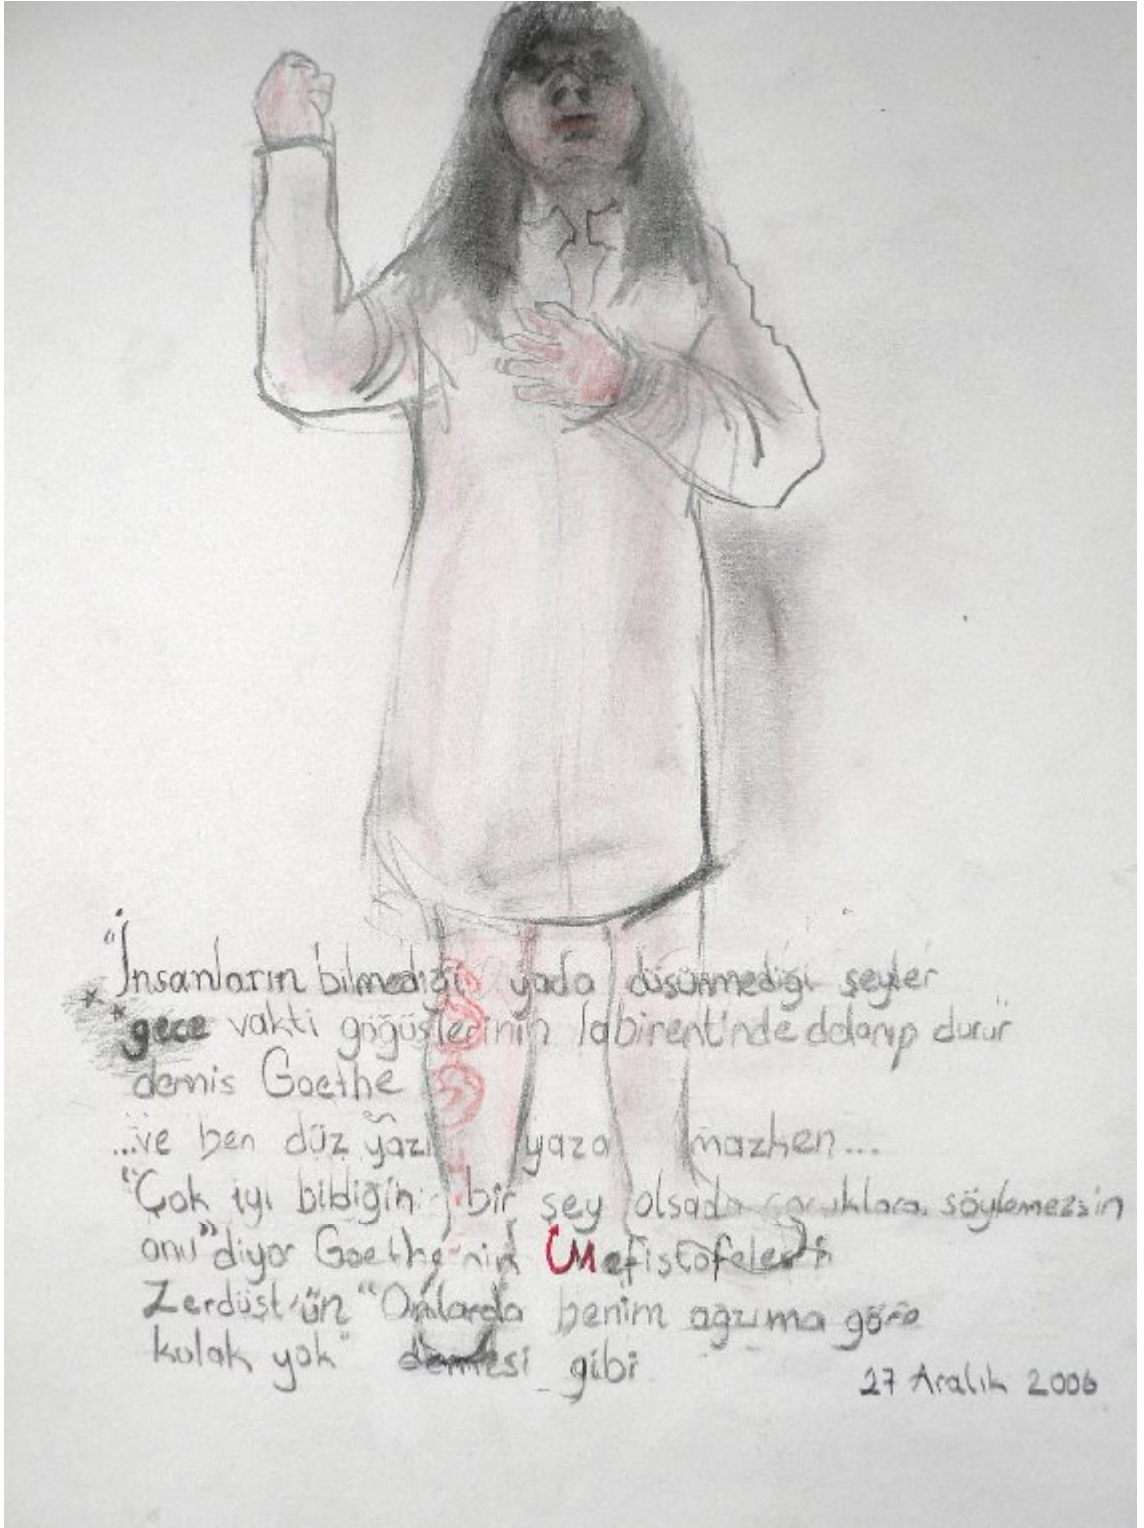 "İnsanların bilmediği yada düşünmediği şeyler
gece vakti göğüslerinin labirent'inde dolanıp durur"
demis Goethe
...ve ben düz yazı yaza mazken...
"Çok iyi bildiğin bir şey olsada çocuklara söylemezsin
onu" diyor Goethe'nin Mefistofeles'i
Zerdüşt'ün "Onlarda benim ağzıma göre
kulak yok" demesi gibi
27 Aralık 2006